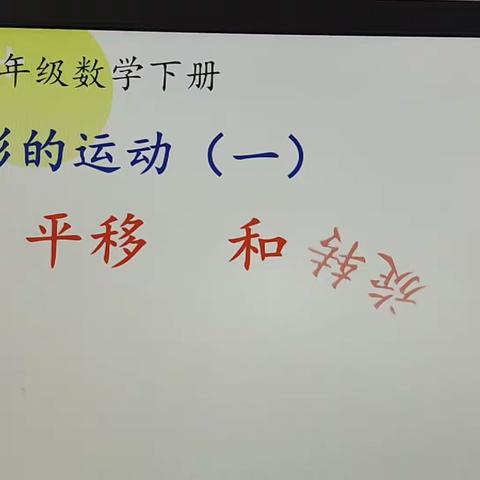 年级数学下册
形的运动（一）
平移 和 旋转